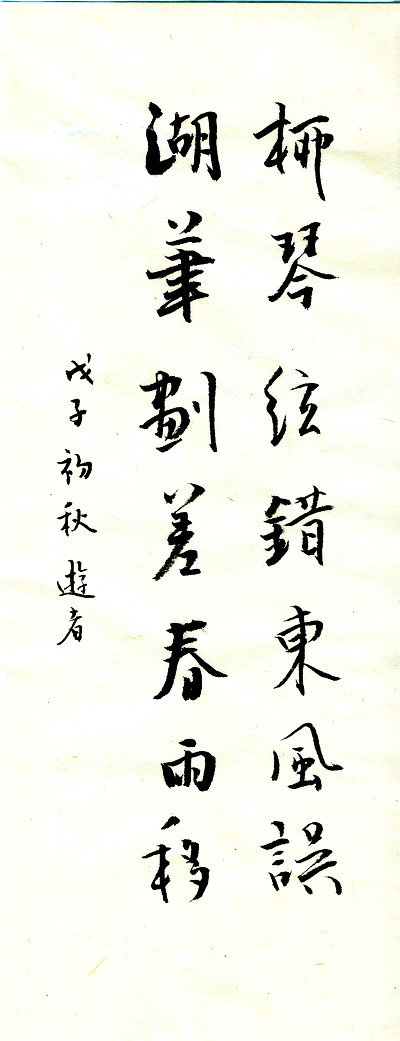 柳琴絃錯東風誤
湖筆劃差春雨移
戊子初秋 遊者